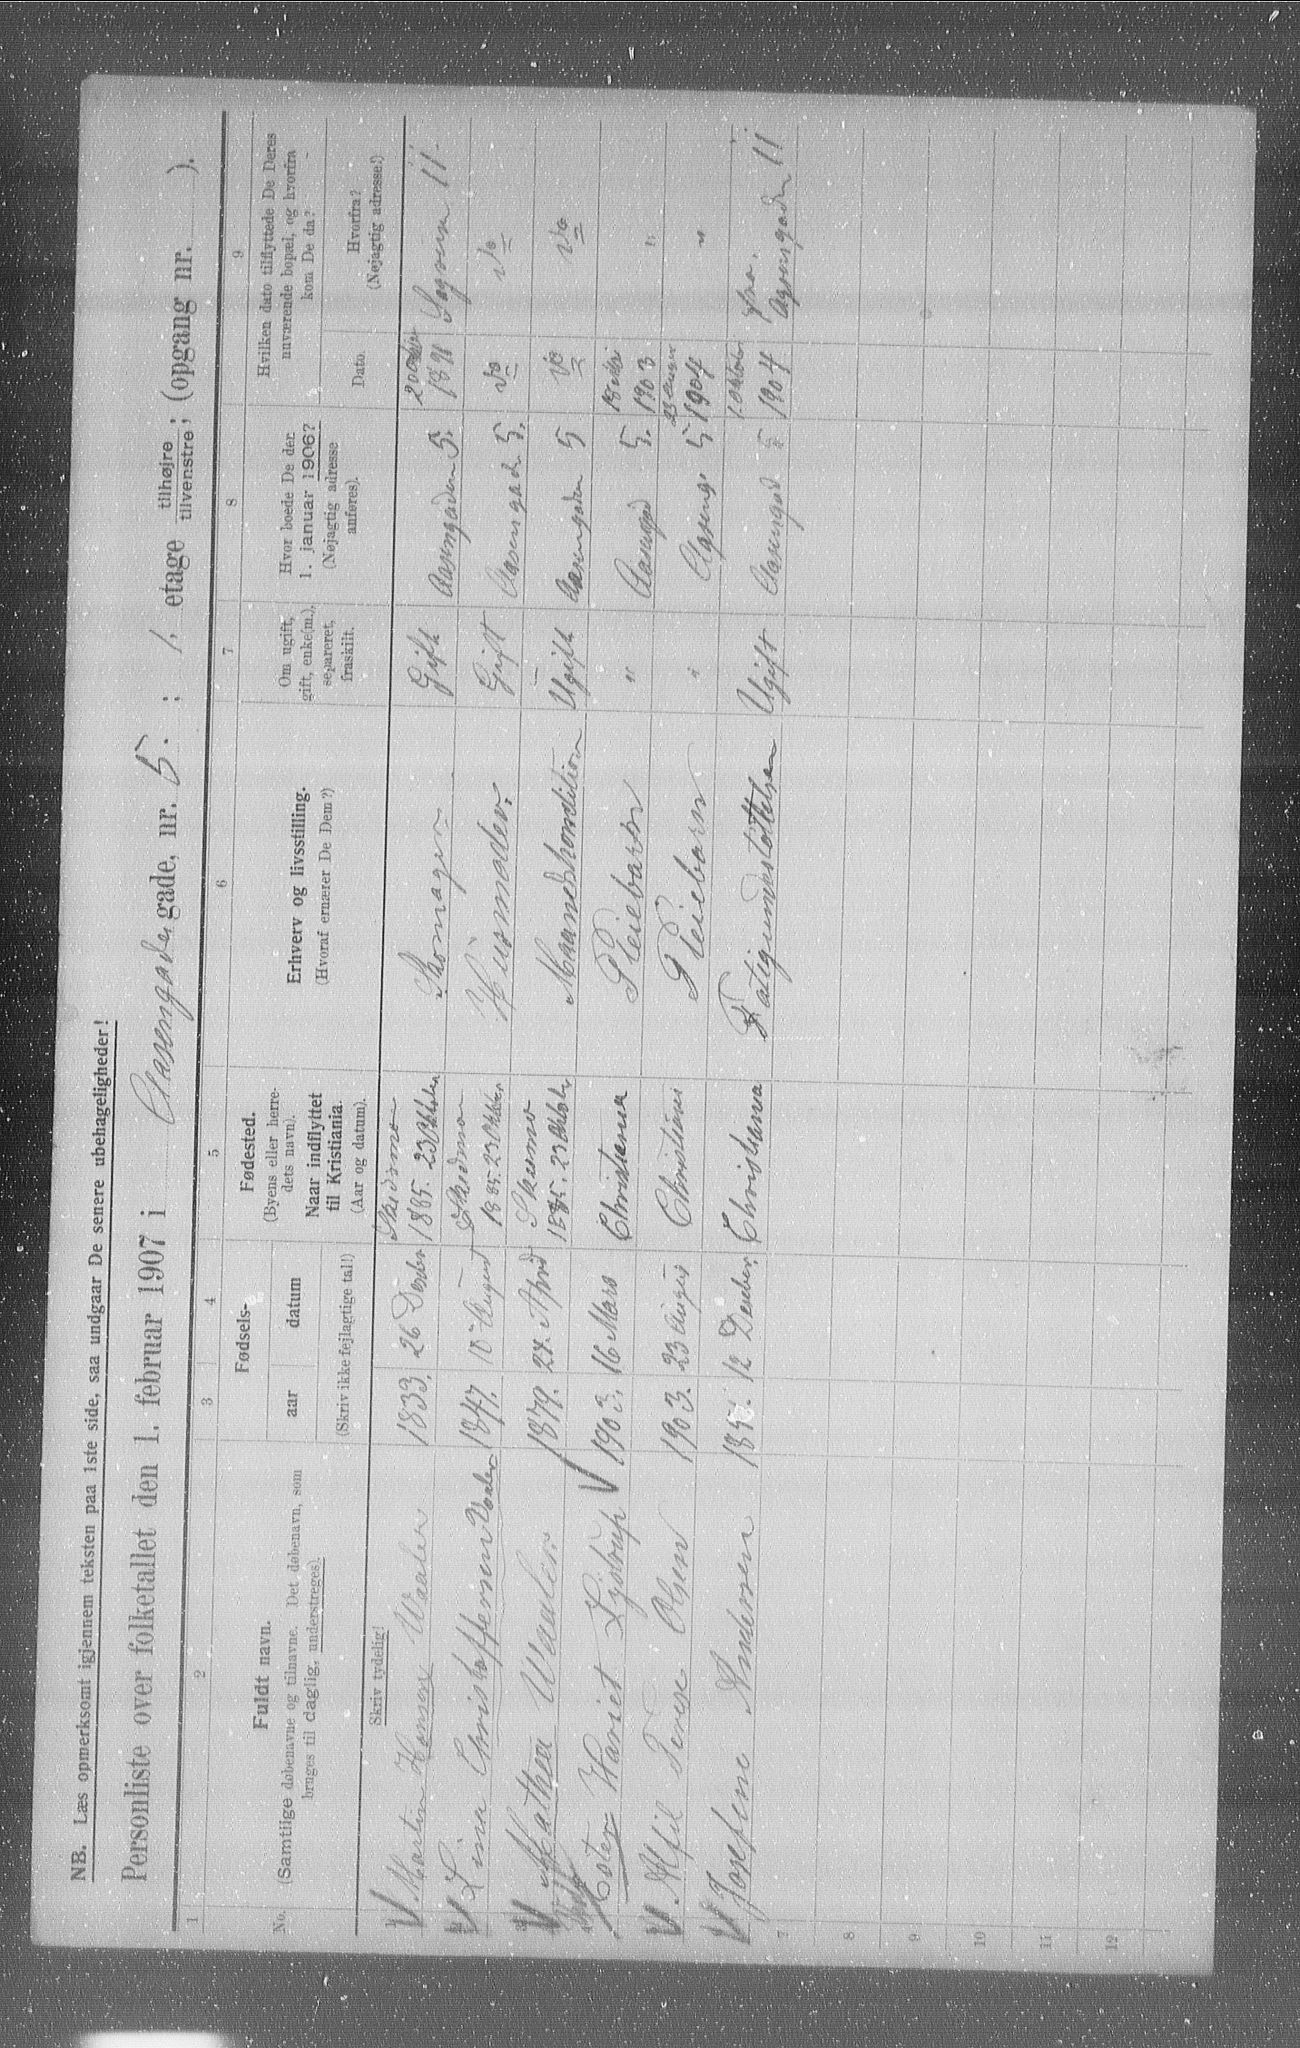 NB. Læs opmerksomt igjennem teksten paa 1ste side, saa undgaar De senere ubehageligheder!
Personliste over folketallet den 1. februar 1907 i Aasengadergade, nr. 5. ; 1. etage tilhøjre tilvenstre; (opgang nr. ).
1 2 3 4 5 6 7 8 9
No.
Fuldt navn.
(Samtlige døbenavne og tilnavne. Det døbenavn, som
bruges til daglig, understreges).
Skriv tydelig!
Fødsels-
aar datum
(Skriv ikke fejlagtige tal!)
Fødested.
(Byens eller herre-
dets navn).
Naar indflyttet
til Kristiania.
(Aar og datum).
Erhverv og livsstilling.
(Hvoraf ernærer De Dem?)
Om ugift,
gift, enke(m.),
separeret,
fraskilt.
Hvor boede De den
1. januar 1906?
(Nøjagtig adresse
anføres).
Hvilken dato tilflyttede De Deres
nuværende bopæl, og hvorfra
kom De da?
Dato.
Hvorfra?
(Nøjagtig adresse!)
V Martin Hansen Waaler 1833. 26 Desbr 1885. 23 Oktober Skomager Gift Aasengaden 5. 1891 11
V Lina Christoffersen Waaler 1847. 10 August Skedsmo 1885. 23 Oktober Husmoder. Gift Aasengaden 5. Do Do
V Mathea Waaler. 1879. 27. April 1885. 23 Oktober Maanedskondition Ugift Aasengaden 5 Do Do
4 Ester Hariet V 1903. 16 Mars Christiania Pleiebarn " Aasengad 5. 1903 "
V Alfil Terese Olsen 1903. 23 August Christiania Pleiebarn " Aaseng. 5 1904 "
V Josefine Andersen 12 Desbr. Christiania Fatigunderstøttelsen Ugift Aasengad 5 1. Oktober 1904 fra. Aasengaden 11
7
8
9
10
11
12